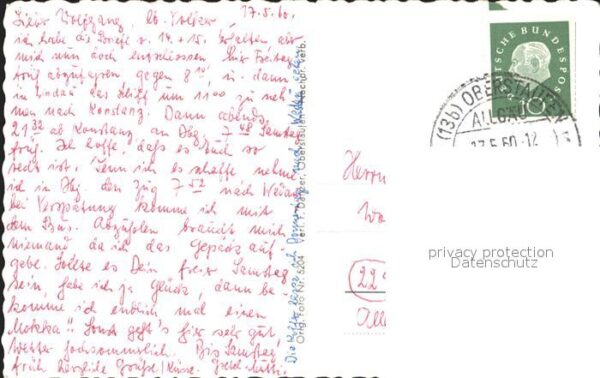 17.5.60.
Lieber Wolfgang,
ich habe die Briefe v. 14. + 15. erhalten
mich nun doch entschlossen hier Freitag
früh abzufahren gegen 8 u. dann
in Lindau das Schiff um 11 zu neh-
men nach Konstanz. Dann abends
21 32 ab Konstanz an Dbg. 7 48 Samstag
früh. Ich hoffe, daß es Euch so
recht ist. Wenn ich es schaffe nehme
ich in Dbg. den Zug 7 52 nach Wedau
bei Verspätung komme ich mit
dem Bus. Abzuholen braucht mich
niemand da ich das Gepäck auf-
gebe. Sollte es Dein freier Samstag
sein, habe ich ja Glück, dann be-
komme ich endlich mal einen
Mokka!! Sonst geht's hier sehr gut,
Wetter hochsommerlich. Bis Samstag
früh herzliche Grüße
Orig. Foto Nr. 5204 Verl. Oberstaufen, Nachdr. verb.
DEUTSCHE BUNDESPOST
10
(13b) OBERSTAUFEN
ALLGÄU
17.5.60-12
Herrn
(22
privacy protection
Datenschutz